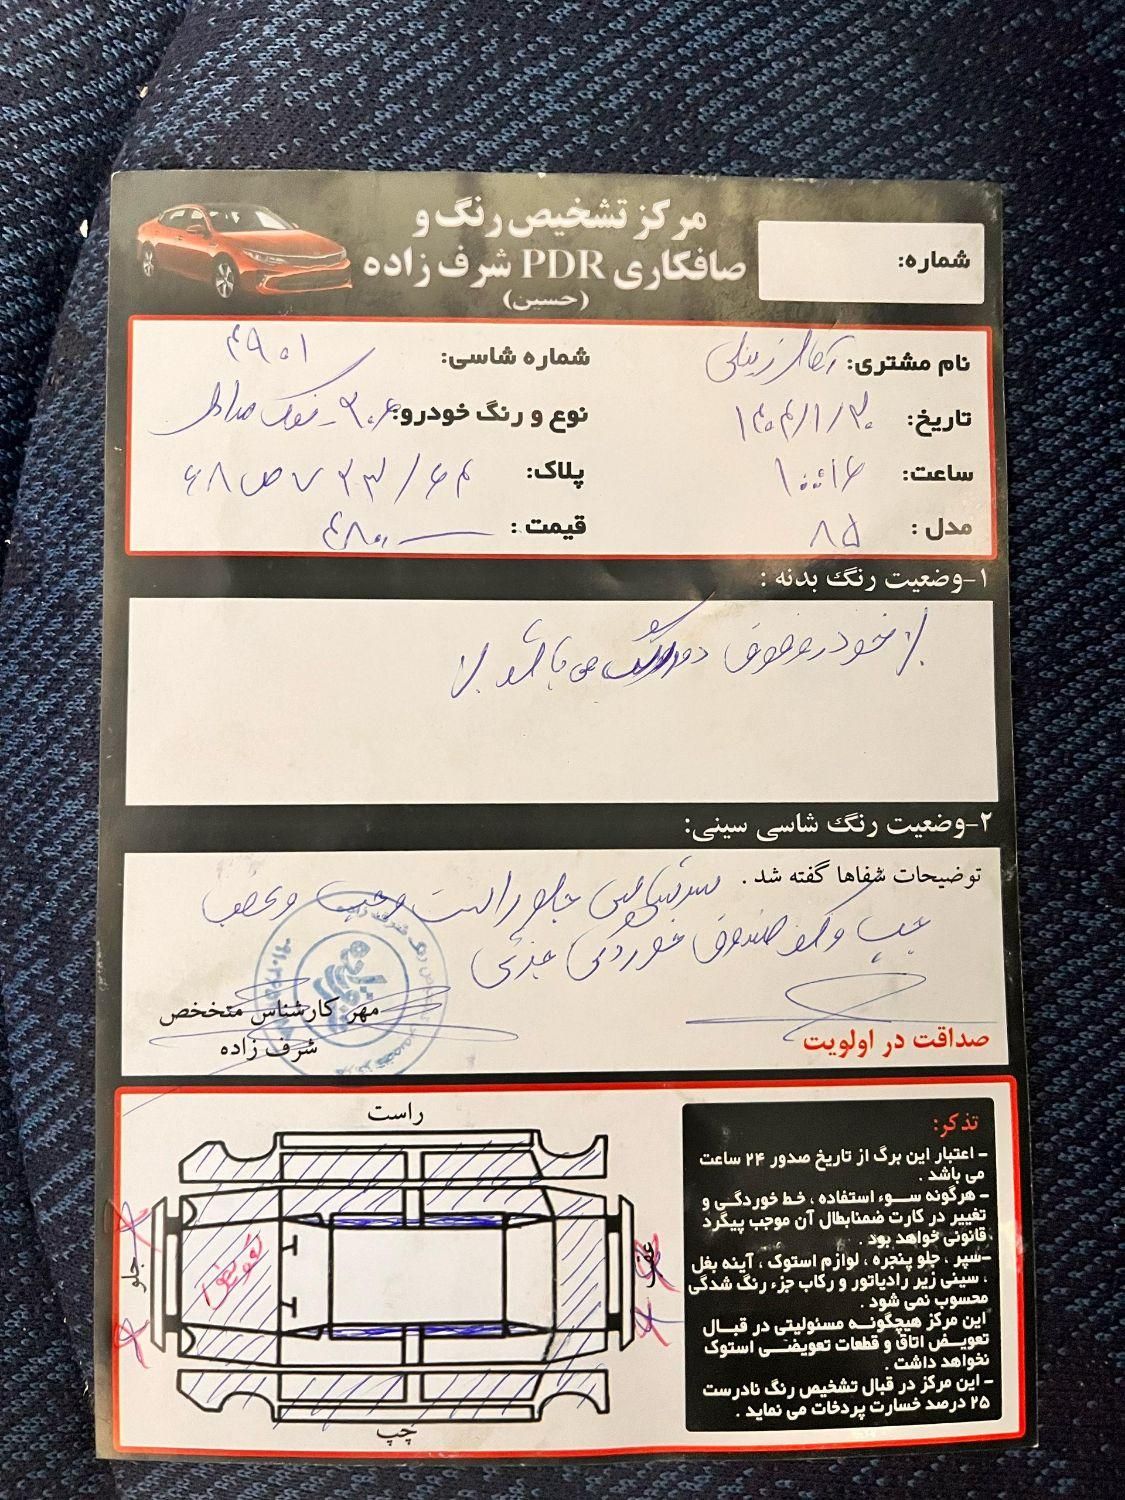 مرکز تشخیص رنگ و
صافکاری PDR شرف زاده
(حسین)
شماره:
نام مشتری: آقای زینلی
شماره شاسی: ۴۹۰۱
تاریخ: ۱۴۰۴/۱/۳۰
نوع و رنگ خودرو: ۲۰۶ - نوک مدادی
ساعت: ۱۰:۱۶
پلاک:
مدل : ۸۵
قیمت : ۴۸۰۰
۱-وضعیت رنگ بدنه :
٪ خودرو فوق دور رنگ می باشد ٪
۲-وضعیت رنگ شاسی سینی:
توضیحات شفاها گفته شد .
سرشاسی جلو راست و چپ و عقب
چپ و کف صندوق خوردگی جزئی
مهر کارشناس متخخص
شرف زاده
صداقت در اولویت
راست
جلو
تعویض
عقب
چپ
تذکر:
- اعتبار این برگ از تاریخ صدور ۲۴ ساعت
می باشد .
- هرگونه سوء استفاده ، خط خوردگی و
تغییر در کارت ضمنابطال آن موجب پیگرد
قانونی خواهد بود .
-سپر ، جلو پنجره ، لوازم استوک ، آینه بغل
، سینی زیر رادیاتور و رکاب جزء رنگ شدگی
محسوب نمی شود .
این مرکز هیچگونه مسئولیتی در قبال
تعویض اتاق و قطعات تعویضی استوک
نخواهد داشت .
- این مرکز در قبال تشخیص رنگ نادرست
۲۵ درصد خسارت پردخات می نماید .